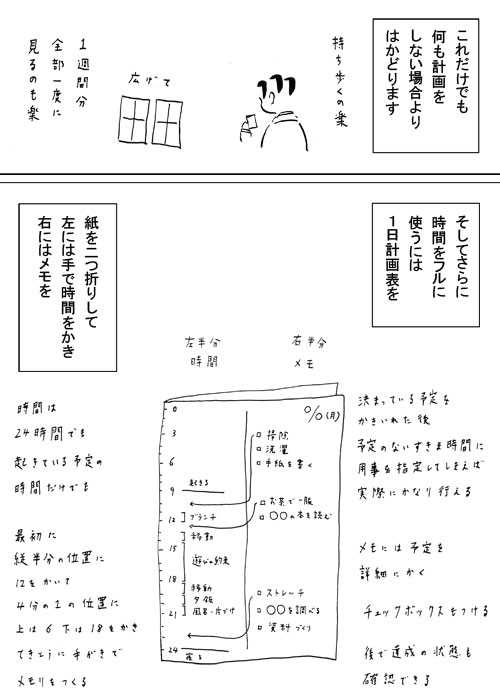 これだけでも
何も計画を
しない場合より
はかどります
持ち歩くの楽
広げて
1週間分
全部一度に
見るのも楽
そしてさらに
時間をフルに
使うには
1日計画表を
紙を二つ折りして
左には手で時間をかき
右にはメモを
右半分
メモ
左半分
時間
決まっている予定を
かきいれた後
予定のないすきま時間に
用事を指定してしまえば
実際にかなり行える
メモには予定を
詳細にかく
チェックボックスをつける
後で達成の状態も
確認できる
0
3
6
9
12
15
18
21
24
起きる
ブランチ
移動
遊びの約束
移動
夕飯
風呂・片づけ
寝る
%(月)
掃除
洗濯
手紙を書く
お茶で一服
〇〇の本を読む
ストレッチ
〇〇を調べる
資料づくり
時間は
24時間でも
起きている予定の
時間だけでも
最初に
縦半分の位置に
12をかいて
4分の1の位置に
上は6下は18をかき
てきとうに手がきで
メモリをつくる